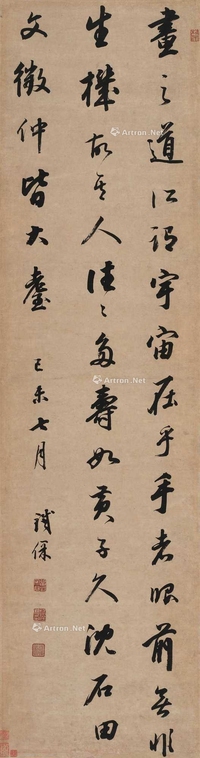 畫之道所謂宇宙在乎手者眼前無非
生機故其人往〻多壽如黃子久沈石田
文徵仲皆大耋
己未七月
鐵保
Artron.Net
Artron.Net
Artron.Net
Artron.Net